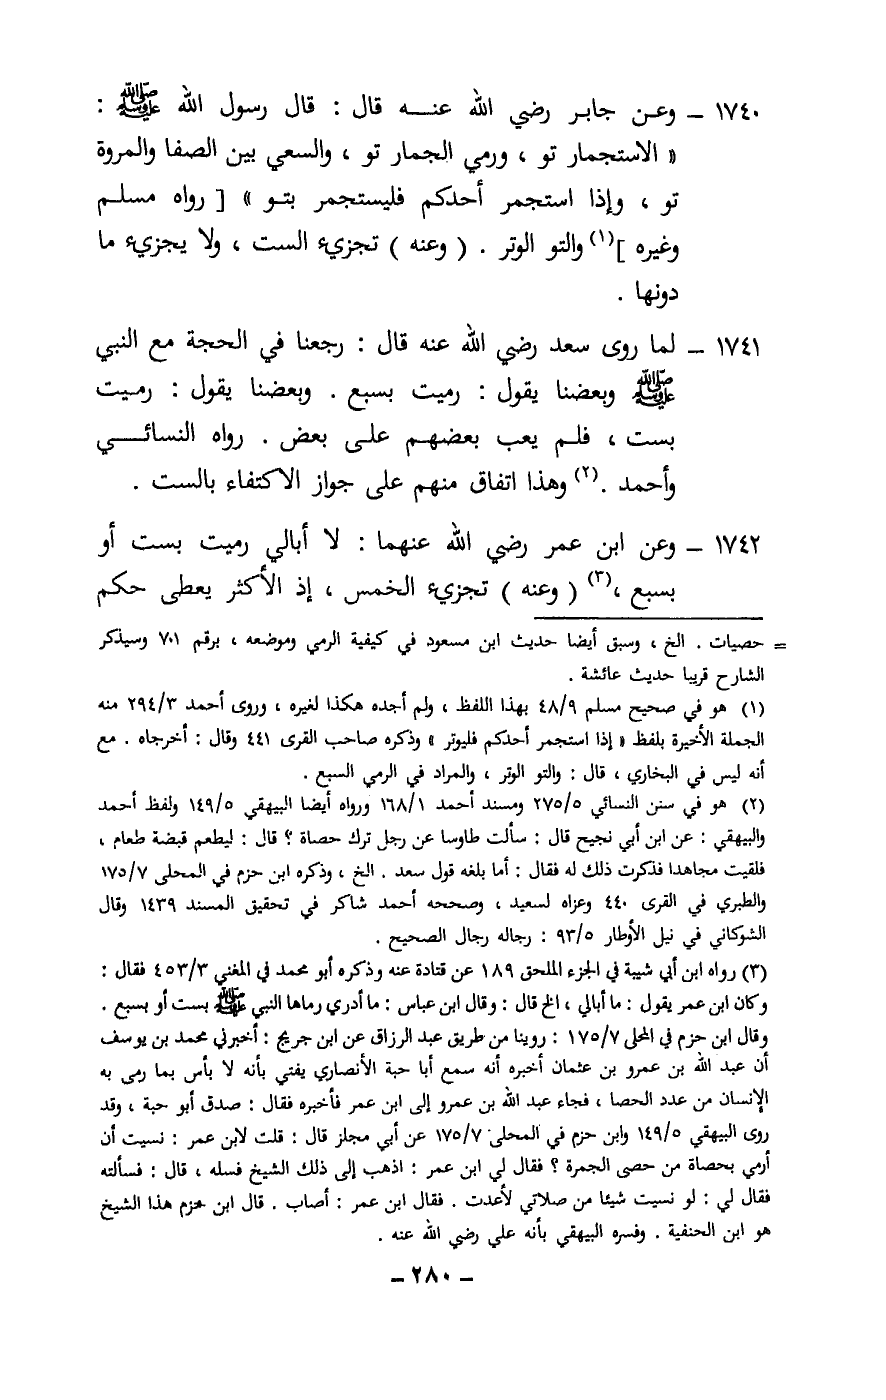 ١٧٤٠ – وعـن جابـر رضي الله عنـــه قال : قال رسول الله ﷺ :
« الاستجمار تو ، ورمي الجمار تو ، والسعي بين الصفا والمروة
تو ، وإذا استجمر أحدكم فليستجمر بتـو » [ رواه مسلـم
وغيره ](١) والتو الوتر . ( وعنه ) تجزيء الست ، ولا يجزيء ما
دونها .
١٧٤١ – لما روى سعد رضي الله عنه قال : رجعنا في الحجة مع النبي
ﷺ وبعضنا يقول : رميت بسبع . وبعضنا يقول : رمـيت
بست ، فلـم يعب بعضهـم علـى بعض . رواه النسائـــي
وأحمد .(٢) وهذا اتفاق منهم على جواز الاكتفاء بالست .
١٧٤٢ – وعن ابن عمر رضي الله عنهما : لا أبالي رميت بست أو
بسبع ،(٣) ( وعنه ) تجزيء الخمس ، إذ الأكثر يعطى حكم
= حصيات . الخ ، وسبق أيضا حديث ابن مسعود في كيفية الرمي وموضعه ، برقم ٧٠١ وسيذكر
الشارح قريبا حديث عائشة .
(١) هو في صحيح مسلم ٤٨/٩ بهذا اللفظ ، ولم أجده هكذا لغيره ، وروى أحمد ٢٩٤/٣ منه
الجملة الأخيرة بلفظ « إذا استجمر أحدكم فليوتر » وذكره صاحب القرى ٤٤١ وقال : أخرجاه . مع
أنه ليس في البخاري ، قال : والتو الوتر ، والمراد في الرمي السبع .
(٢) هو في سنن النسائي ٢٧٥/٥ ومسند أحمد ١٦٨/١ ورواه أيضا البيهقي ١٤٩/٥ ولفظ أحمد
والبيهقي : عن ابن أبي نجيح قال : سألت طاوسا عن رجل ترك حصاة ؟ قال : ليطعم قبضة طعام ،
فلقيت مجاهدا فذكرت ذلك له فقال : أما بلغه قول سعد . الخ ، وذكره ابن حزم في المحلى ١٧٥/٧
والطبري في القرى ٤٤٠ وعزاه لسعيد ، وصححه أحمد شاكر في تحقيق المسند ١٤٣٩ وقال
الشوكاني في نيل الأوطار ٩٣/٥ : رجاله رجال الصحيح .
(٣) رواه ابن أبي شيبة في الجزء الملحق ١٨٩ عن قتادة عنه وذكره أبو محمد في المغني ٤٥٣/٣ فقال :
وكان ابن عمر يقول : ما أبالي ، الخ قال : وقال ابن عباس : ما أدري رماها النبي ﷺ بست أو بسبع .
وقال ابن حزم في المحلى ١٧٥/٧ : روينا من طريق عبد الرزاق عن ابن جريج : أخبرني محمد بن يوسف
أن عبد الله بن عمرو بن عثمان أخبره أنه سمع أبا حبة الأنصاري يفتي بأنه لا بأس بما رمى به
الإنسان من عدد الحصا ، فجاء عبد الله بن عمرو إلى ابن عمر فأخبره فقال : صدق أبو حبة ، وقد
روى البيهقي ١٤٩/٥ وابن حزم في المحلى ١٧٥/٧ عن أبي مجلز قال : قلت لابن عمر : نسيت أن
أرمي بحصاة من حصى الجمرة ؟ فقال لي ابن عمر : اذهب إلى ذلك الشيخ فسله ، قال : فسألته
فقال لي : لو نسيت شيئا من صلاتي لأعدت . فقال ابن عمر : أصاب . قال ابن حزم هذا الشيخ
هو ابن الحنفية . وفسره البيهقي بأنه علي رضي الله عنه .
– ٢٨٠ –